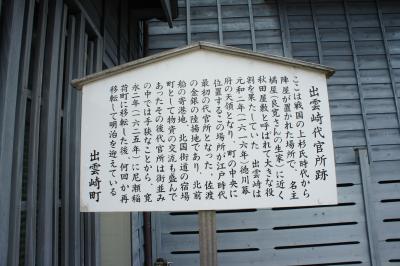 出雲崎代官所跡
ここは戦国の上杉氏時代から
陣屋が置かれた場所で、名主
橘屋（良寛さんの生家）に近く
秋田屋敷と呼ばれて大きな役
割を果たしていた。出雲崎は
元和二年（一六一六年）徳川幕
府の天領となり、町の中央に
位置するこの場所が江戸時代
最初の代官所となった。佐渡
の金銀の陸揚地であり、北前
船の寄港地、北国街道の宿場
町として物資の交流も盛んで
あったその後代官所は街並み
の中では手狭なことから、寛
永二年（一六二五年）に尼瀬稲
荷町に移転した後、何回か再
移転して明治を迎えている
出雲崎町